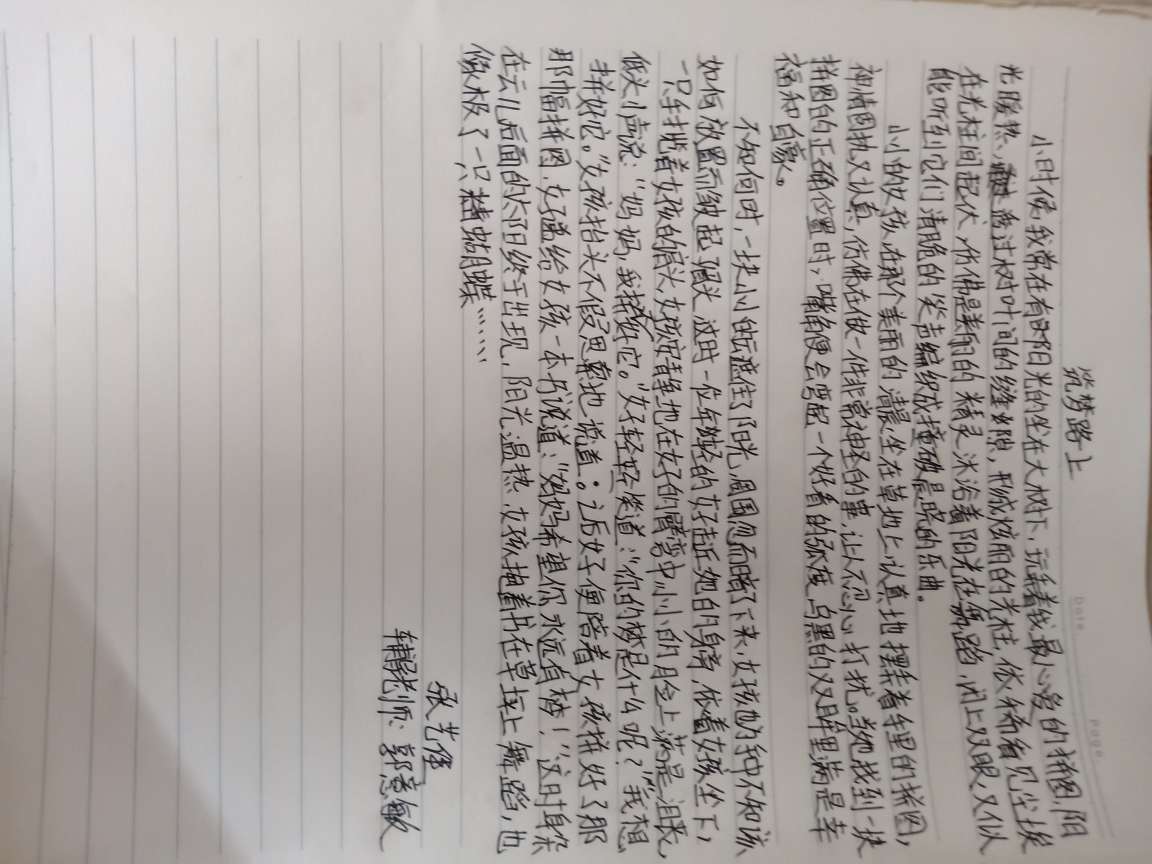 Date
Page
筑梦路上
小时候,我常在有阳光的坐在大树下,玩弄着我最心爱的拼图,阳
光暖热,透过树叶间的缝隙,形成炫丽的光柱,依稀看见尘埃
在光柱间起伏,仿佛是美丽的精灵沐浴着阳光在舞蹈,闭上双眼,又似
能听到它们清脆的笑声编织成撞破晨晓的乐曲。
小小的女孩,在那个美丽的清晨坐在草地上认真地摆弄着手里的拼图,
神情固执又认真,仿佛在做一件非常神圣的事,让人不忍心打扰。当她找到一块
拼图的正确位置时,嘴角便会弯起一个好看的弧度,乌黑的双眸里满是幸
福和自豪。
不知何时,一块小的云遮住了阳光,周围忽而暗了下来,女孩也为手中不知该
如何放置而皱起了眉头,这时一位年轻的女子走近她的身旁,依着女孩坐下,
一只手揽着女孩的肩头,女孩安静地在女子的臂弯中,小小的脸上满是沮丧,
低头小声说:“妈妈,我拼不好它。”女子轻轻笑道:“你的梦是什么呢?”“我想
拼好它。”女孩抬头不假思索地说道。之后女子便陪着女孩拼好了那
那幅拼图,女子递给女孩一本书说道:“妈妈希望你永远有梦!”这时躲
在云儿后面的太阳终于出现,阳光温热,女孩抱着书在草坪上舞蹈,也
像极了一只蝴蝶……
张艺瑾
辅导老师:郭意敏